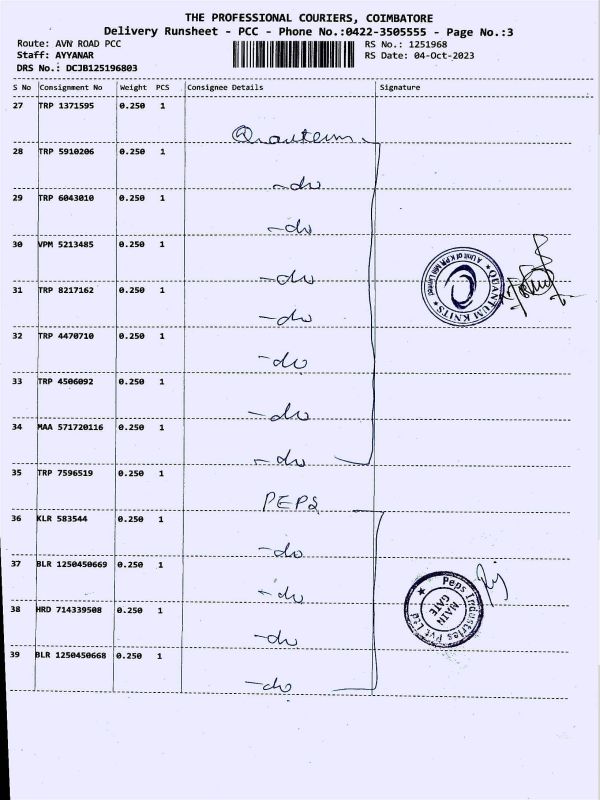 THE PROFESSIONAL COURIERS, COIMBATORE
Delivery Runsheet - PCC - Phone No.:0422-3505555 - Page No.:3
Route: AVN ROAD PCC RS No.: 1251968
Staff: AYYANAR RS Date: 04-Oct-2023
DRS No.: DCJB125196803
S No Consignment No Weight PCS Consignee Details Signature
27 TRP 1371595 0.250 1
Quantum
28 TRP 5910206 0.250 1
-do
29 TRP 6043010 0.250 1
-do
30 VPM 5213485 0.250 1
-do
QUANTUM KNITS
A Unit of K.P.R. Mill Limited
31 TRP 8217162 0.250 1
-do
32 TRP 4470710 0.250 1
-do
33 TRP 4506092 0.250 1
-do
34 MAA 571720116 0.250 1
-do
35 TRP 7596519 0.250 1
PEPS
36 KLR 583544 0.250 1
-do
37 BLR 1250450669 0.250 1
-do
Peps Industries Pvt Ltd
MAIN
GATE
38 HRD 714339508 0.250 1
-do
39 BLR 1250450668 0.250 1
-do